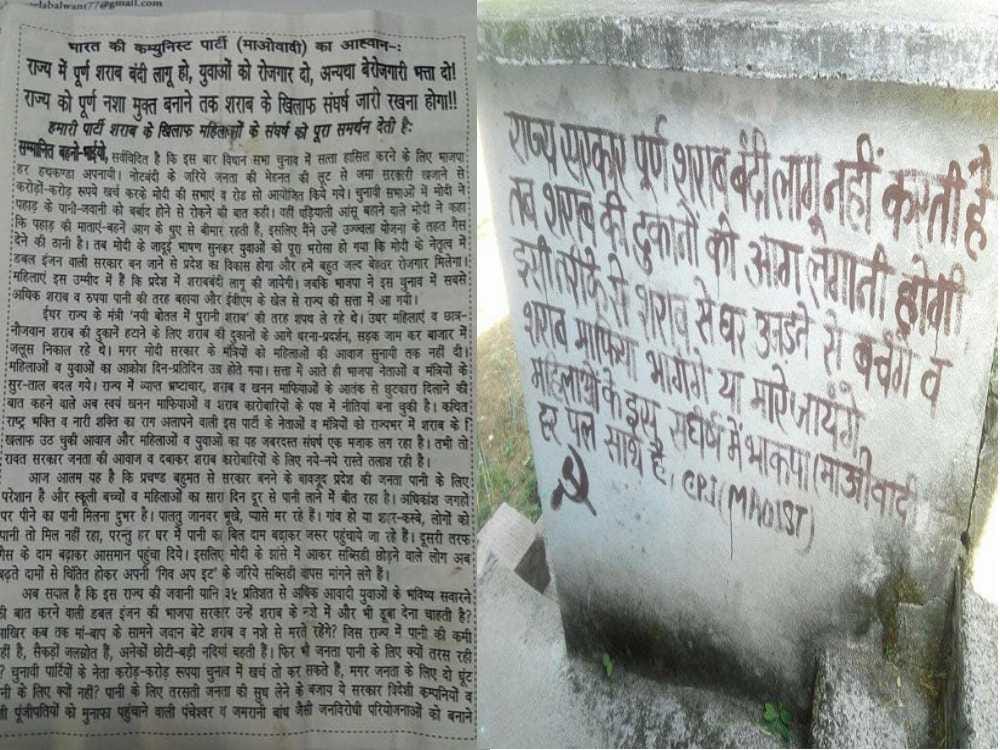 elabalwant77@gmail.com
भारत की कम्युनिस्ट पार्टी (माओवादी) का आह्वान–:
राज्य में पूर्ण शराब बंदी लागू हो, युवाओं को रोजगार दो, अन्यथा बेरोजगारी भत्ता दो!
राज्य को पूर्ण नशा मुक्त बनाने तक शराब के खिलाफ संघर्ष जारी रखना होगा!!
हमारी पार्टी शराब के खिलाफ महिलाओं के संघर्ष को पूरा समर्थन देती है:
सम्मानित बहनो-भाईयो, सर्वविदित है कि इस बार विधान सभा चुनाव में सत्ता हासिल करने के लिए भाजपा
हर हथकण्डा अपनायी। नोटबंदी के जरिये जनता की मेहनत की लूट से जमा सरकारी खजाने से
करोड़ों-करोड़ रूपये खर्च करके मोदी की सभाएं व रोड सो आयोजित किये गये। चुनावी सभाओं में मोदी ने
पहाड़ के पानी-जवानी को बर्बाद होने से रोकने की बात कही। वही घड़ियाली आंसू बहाने वाले मोदी ने कहा
कि पहाड़ की माताएं-बहनें आग के धुए से बीमार रहती हैं, इसलिए मैंने उन्हें उज्ज्वला योजना के तहत गैस
देने की ठानी है। तब मोदी के जादूई भाषण सुनकर युवाओं को पूरा भरोसा हो गया कि मोदी के नेतृत्व में
डबल इंजन वाली सरकार बन जाने से प्रदेश का विकास होगा और हमें बहुत जल्द बेहतर रोजगार मिलेगा।
महिलाएं इस उम्मीद में हैं कि प्रदेश में शराबबंदी लागू की जायेगी। जबकि भाजपा ने इस चुनाव में सबसे
अधिक शराब व रुपया पानी की तरह बहाया और ईवीएम के खेल से राज्य की सत्ता में आ गयी।
ईधर राज्य के मंत्री 'नयी बोतल में पुरानी शराब' की तरह शपथ ले रहे थे। उधर महिलाएं व छात्र-
नौजवान शराब की दुकानें हटाने के लिए शराब की दुकानों के आगे धरना-प्रदर्शन, सड़क जाम कर बाजार में
जलूस निकाल रहे थे। मगर मोदी सरकार के मंत्रियों को महिलाओं की आवाज सुनायी तक नहीं दी।
महिलाओं व युवाओं का आक्रोश दिन-प्रतिदिन उग्र होते गया। सत्ता में आते ही भाजपा नेताओं व मंत्रियों के
सुर-ताल बदल गये। राज्य में व्याप्त भ्रष्टाचार, शराब व खनन माफियाओं के आतंक से छुटकारा दिलाने की
बात कहने वाले अब स्वयं खनन माफियाओं व शराब कारोबारियों के पक्ष में नीतियां बना चुकी है। कथित
राष्ट्र भक्ति व नारी शक्ति का राग अलापने वाली इस पार्टी के नेताओं व मंत्रियों को राज्यभर में शराब के
खिलाफ उठ चुकी आवाज और महिलाओं व युवाओं का यह जबरदस्त संघर्ष एक मजाक लग रहा है। तभी तो
रावत सरकार जनता की आवाज व दबाकर शराब कारोबारियों के लिए नये-नये रास्ते तलाश रही है।
आज आलम यह है कि प्रचण्ड बहुमत से सरकार बनने के बावजूद प्रदेश की जनता पानी के लिए
परेशान है और स्कूली बच्चों व महिलाओं का सारा दिन दूर से पानी लाने में बीत रहा है। अधिकांश जगहों
पर पीने का पानी मिलना दुभर है। पालतु जानवर भूखे, प्यासे मर रहे हैं। गांव हो या शहर-कस्बे, लोगों को
पानी तो मिल नहीं रहा, परन्तु हर घर में पानी का बिल दाम बढ़ाकर जरुर पहुंचाये जा रहे हैं। दूसरी तरफ
गैस के दाम बढ़ाकर आसमान पहुंचा दिये। इसलिए मोदी के झांसे में आकर सब्सिडी छोड़ने वाले लोग अब
बढ़ते दामों से चिंतित होकर अपनी 'गिव अप इट' के जरिये सब्सिडी वापस मांगने लगे हैं।
अब सवाल है कि इस राज्य की जवानी यानि ३५ प्रतिशत से अधिक आवादी युवाओं के भविष्य सवारने
की बात करने वाली डबल इंजन की भाजपा सरकार उन्हें शराब के नशे में और भी डूबा देना चाहती है?
आखिर कब तक मां-बाप के सामने जवान बेटे शराब व नशे से मरते रहेंगे? जिस राज्य में पानी की कमी
नहीं है, सैकड़ों जलस्रोत हैं, अनेकों छोटी-बड़ी नदियां बहती हैं। फिर भी जनता पानी के लिए क्यों तरस रही
? चुनावी पार्टियों के नेता करोड़-करोड़ रूपया चुनाव में खर्च तो कर सकते हैं, मगर जनता के लिए दो घूंट
पानी के लिए क्यों नहीं? पानी के लिए तरसती जनता की सुध लेने के बजाय ये सरकार विदेशी कम्पनियों व
पूंजीपतियों को मुनाफा पहुंचाने वाली पंचेश्वर व जमरानी बांध जैसी जनविरोधी परियोजनाओं को बनाने
राज्य सरकार पूर्ण शराब बंदी लागू नहीं करती है
तब शराब की दुकानों को आग लगानी होगी
इसी तरीके से शराब से घर उजडने से बचेंगे व
शराब माफिया भागेंगे या मारे जायेंगे,
महिलाओं के इस संघर्ष में भाकपा (माओवादी)
हर पल साथ है, C.P.I (MAOIST)